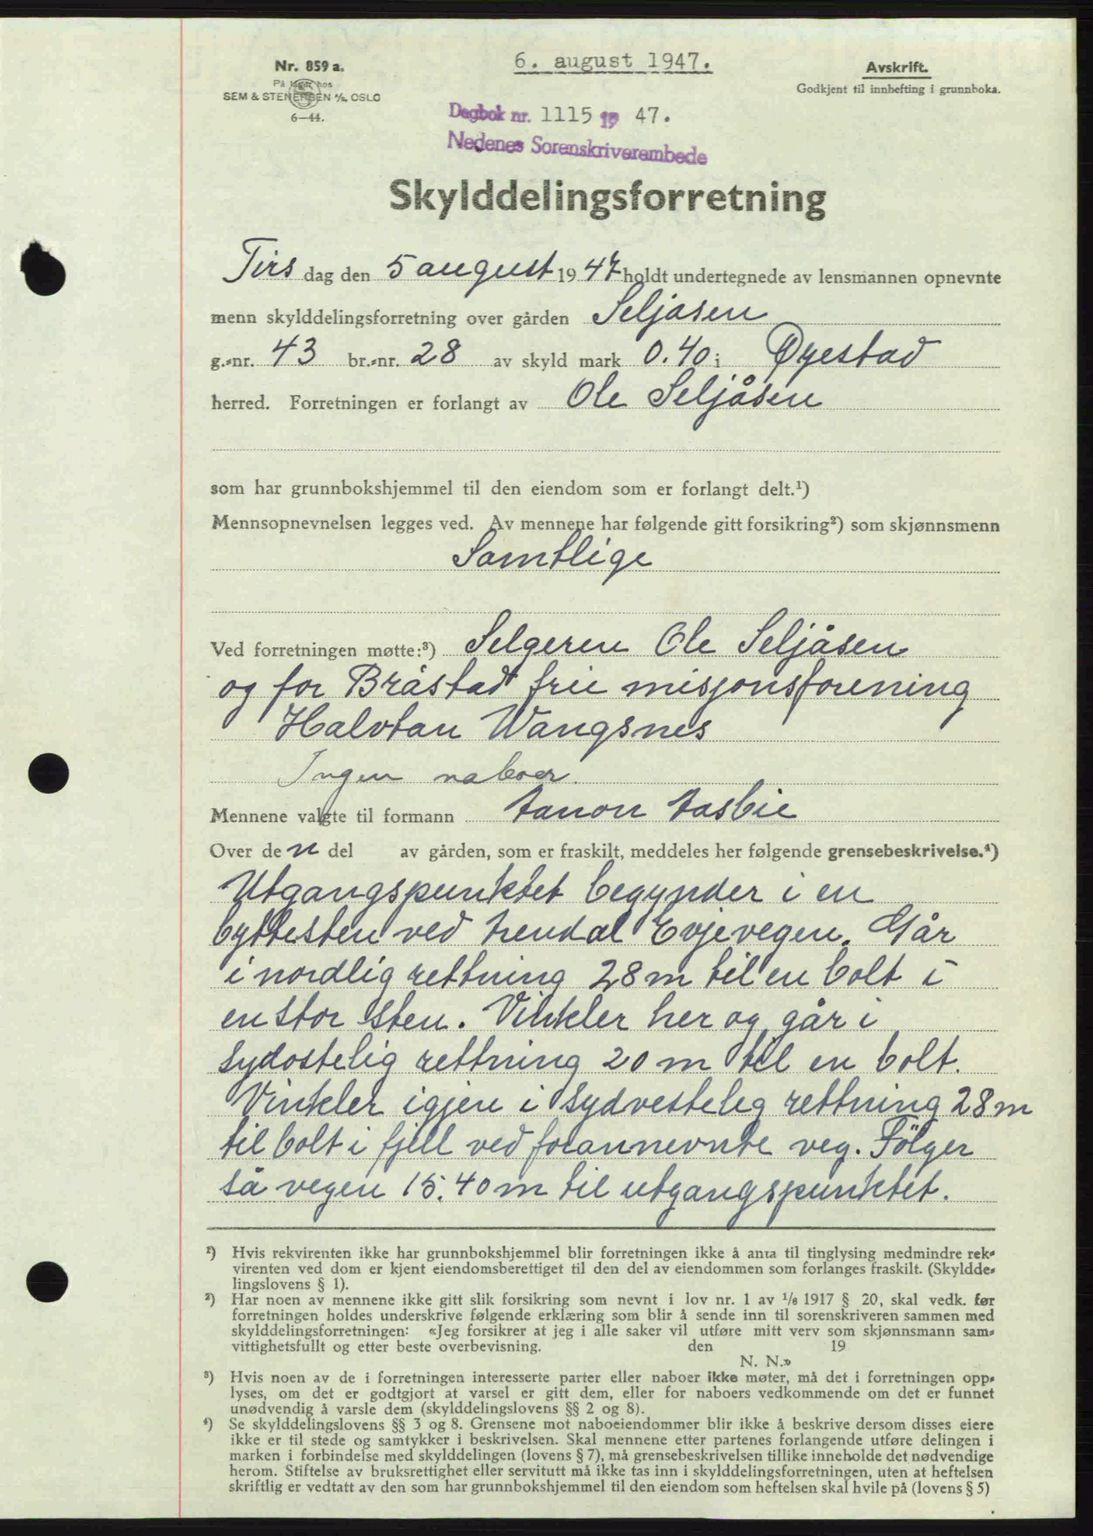 Nr. 859 a.
På lager hos
SEM & STENERSEN A/S, OSLO
6-44.
6. august 1947.
Avskrift.
Godkjent til innhefting i grunnboka.
Dagbok nr. 1115 19 47.
Nedenes Sorenskriverembede
Skylddelingsforretning
Tirs dag den 5 august 19 47 holdt undertegnede av lensmannen opnevnte
menn skylddelingsforretning over gården Seljåsen
g.-nr. 43 br.-nr. 28 av skyld mark 0.40 i Øyestad
herred. Forretningen er forlangt av Ole Seljåsen
som har grunnbokshjemmel til den eiendom som er forlangt delt.¹)
Mennsopnevnelsen legges ved. Av mennene har følgende gitt forsikring²) som skjønnsmenn
Samtlige
Ved forretningen møtte:³) Selgeren Ole Seljåsen
og for Bråstad frie misjonsforening
Halvtan Wangsnes
Ingen naboer.
Mennene valgte til formann Aanon Aasbie
Over den del av gården, som er fraskilt, meddeles her følgende grensebeskrivelse.⁴)
Utgangspunktet begynder i en
byttesten ved Arendal Evjevegen. Går
i nordlig rettning 28 m til en bolt i
en stor sten. Vinkler her og går i
sydostelig rettning 20 m til en bolt.
Vinkler igjen i sydvesteleg rettning 28 m
til bolt i fjell ved forannevnte veg. Fölger
så vegen 15.40 m til utgangspunktet.
¹) Hvis rekvirenten ikke har grunnbokshjemmel blir forretningen ikke å anta til tinglysing medmindre rek-
virenten ved dom er kjent eiendomsberettiget til den del av eiendommen som forlanges fraskilt. (Skyldde-
lingslovens § 1).
²) Har noen av mennene ikke gitt slik forsikring som nevnt i lov nr. 1 av 1/6 1917 § 20, skal vedk. før
forretningen holdes underskrive følgende erklæring som blir å sende inn til sorenskriveren sammen med
skylddelingsforretningen: «Jeg forsikrer at jeg i alle saker vil utføre mitt verv som skjønnsmann sam-
vittighetsfullt og etter beste overbevisning. den 19
N. N.»
³) Hvis noen av de i forretningen interesserte parter eller naboer ikke møter, må det i forretningen opp-
lyses, om det er godtgjort at varsel er gitt dem, eller for naboers vedkommende om det er funnet
unødvendig å varsle dem (skylddelingslovens §§ 2 og 8).
⁴) Se skylddelingslovens §§ 3 og 8. Grensene mot naboeiendommer blir ikke å beskrive dersom disses eiere
ikke er til stede og samtykker i beskrivelsen. Skal mennene etter partenes forlangende utføre delingen i
marken i forbindelse med skylddelingen (lovens § 7), må grensebeskrivelsen tillike inneholde det nødvendige
herom. Stiftelse av bruksrettighet eller servitutt må ikke tas inn i skylddelingsforretningen, uten at heftelsen
skriftlig er vedtatt av den som har grunnbokshjemmel til den eiendom som heftelsen skal hvile på (lovens § 5)